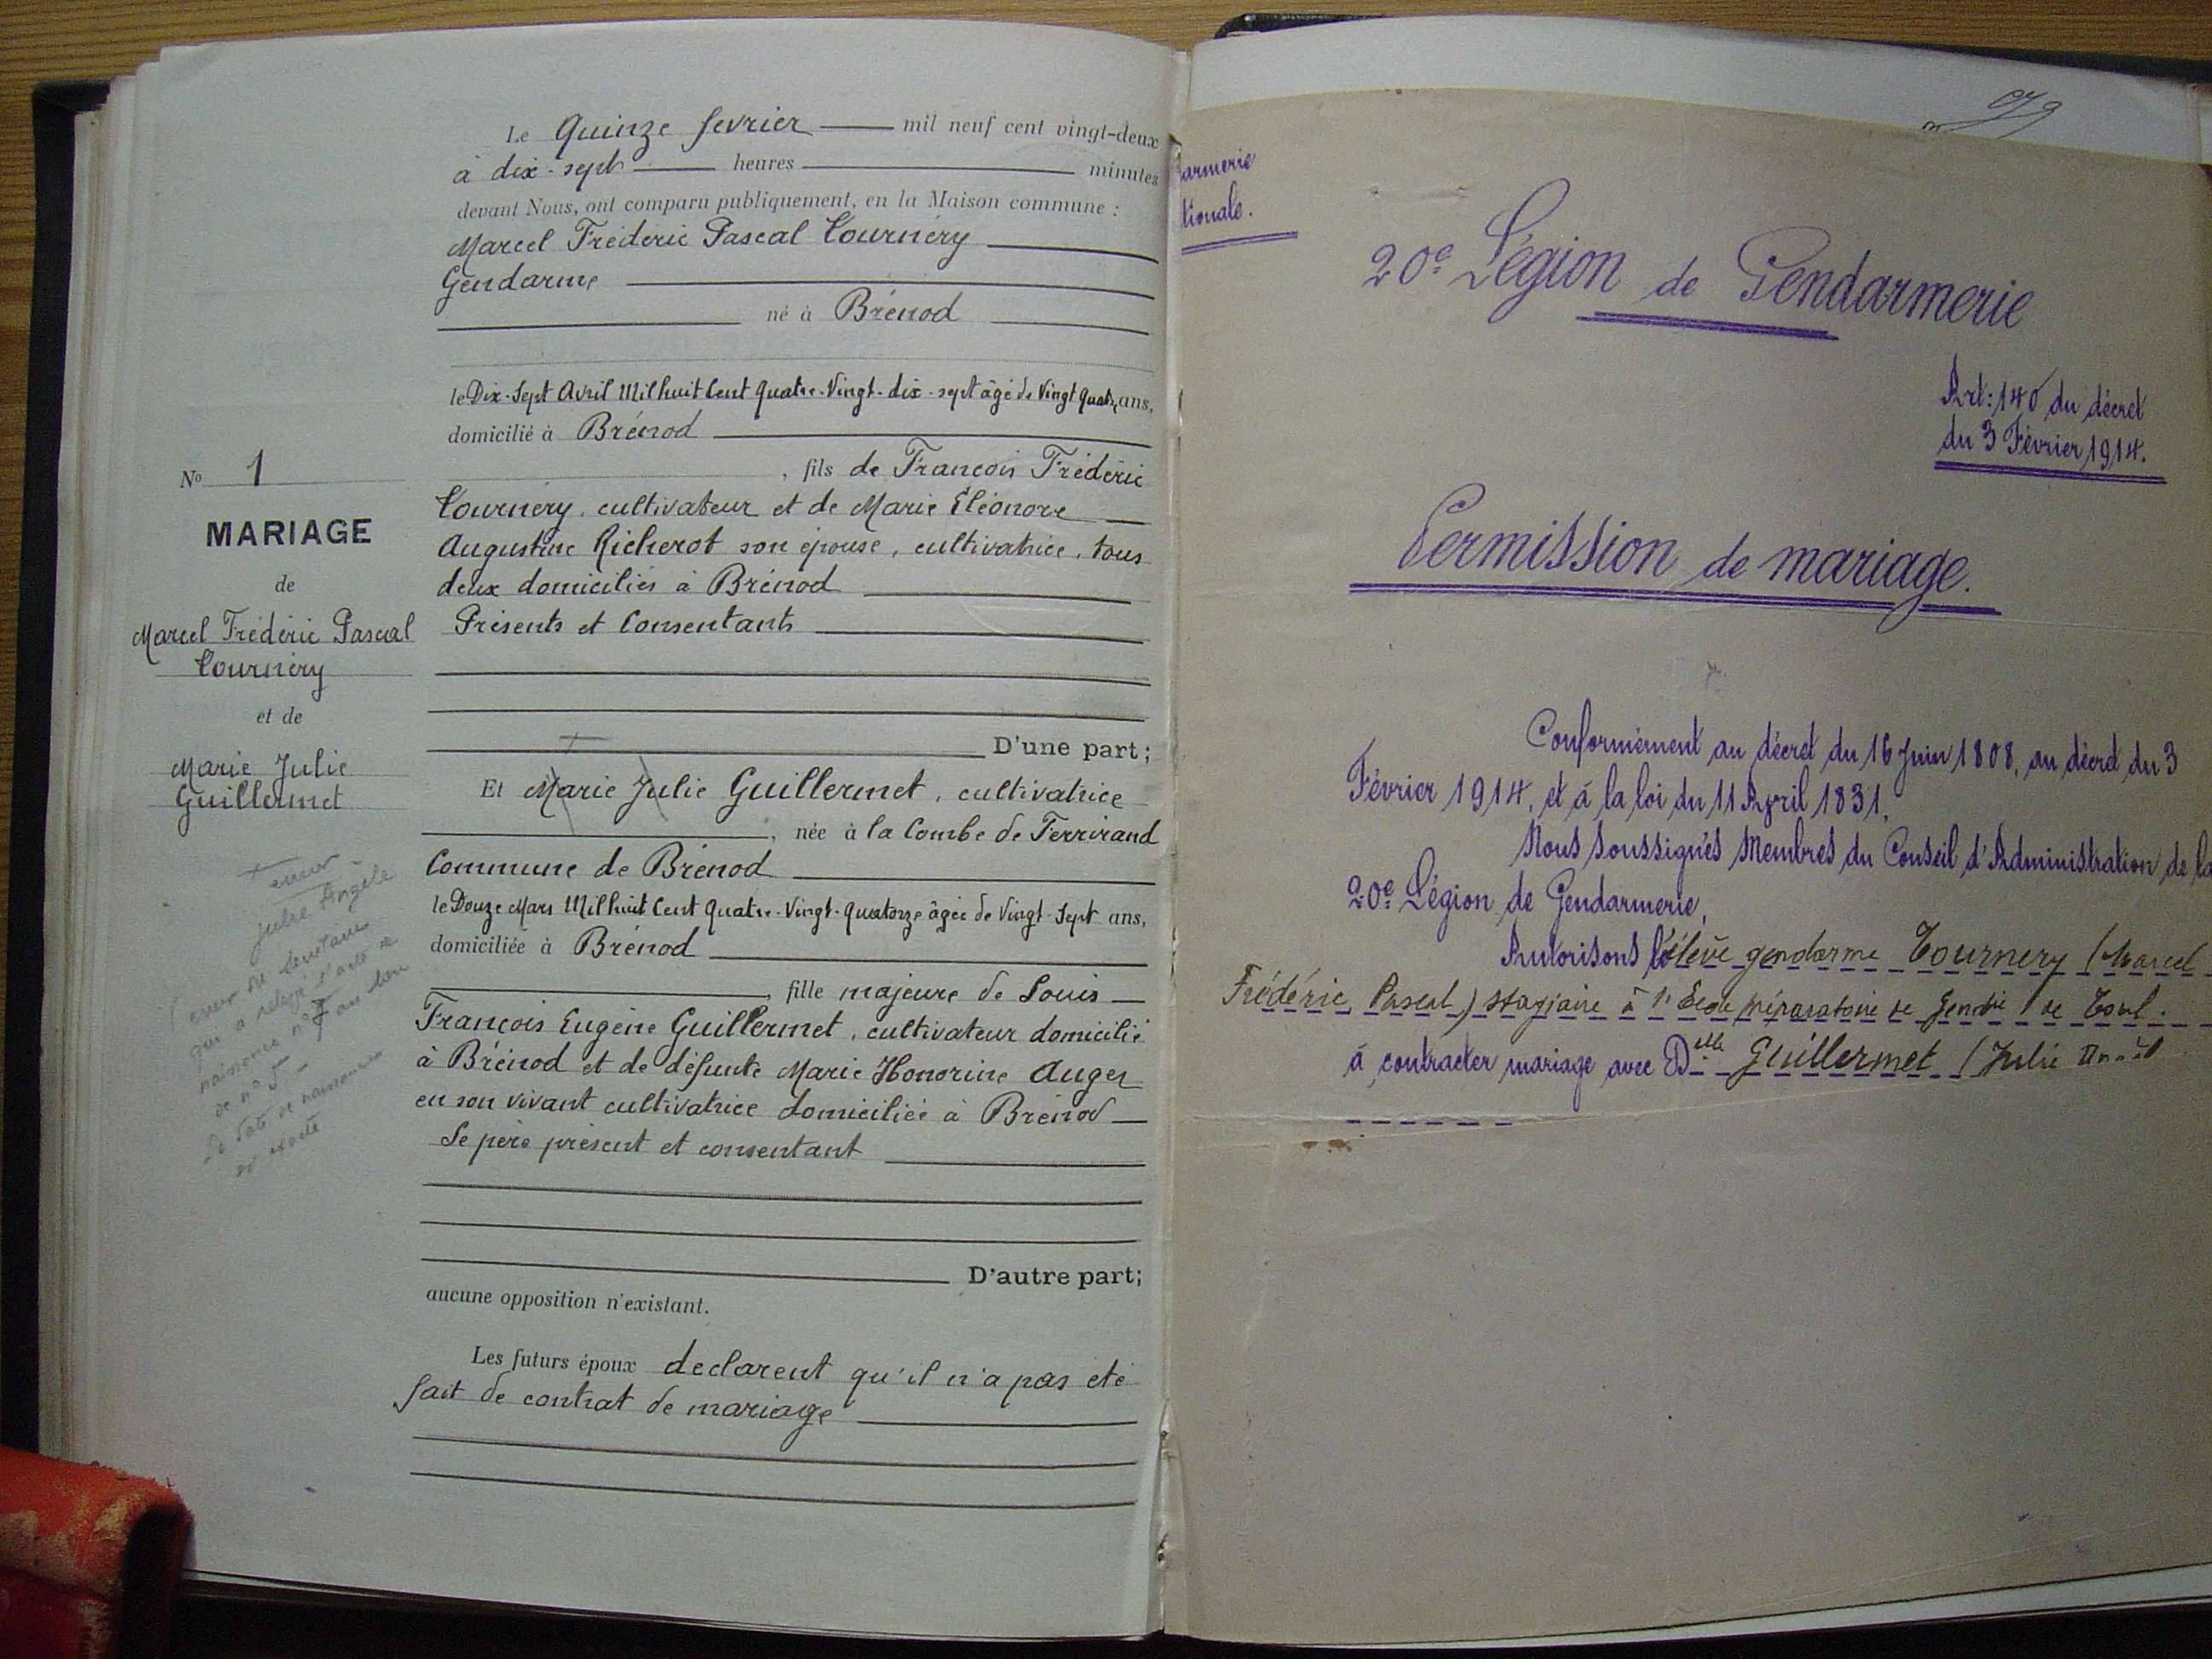 Le Quinze fevrier mil neuf cent vingt-deux
à dix-sept heures minutes
devant Nous, ont comparu publiquement, en la Maison commune :
Marcel Fréderic Pascal Tournéry
Gendarme
né à Brénod
le Dix-Sept Avril Mil huit Cent Quatre-Vingt-dix-sept âgé de Vingt Quatre ans,
domicilié à Brénod
, fils de Francois Fréderic
Tournéry, cultivateur et de Marie Éléonore
Augustine Richerot son épouse, cultivatrice, tous
deux domiciliés à Brénod
Présents et Consentants
D'une part ;
Et Marie Julie Guillermet, cultivatrice
, née à la Combe de Ferrirand
Commune de Brénod
le Douze Mars Mil huit Cent Quatre-Vingt-Quatorze âgée de Vingt-Sept ans,
domiciliée à Brénod
, fille majeure de Louis
François Eugène Guillermet, cultivateur domicilié
à Brénod et de défunte Marie Honorine Auger
en son vivant cultivatrice domiciliée à Brénod
Le père présent et consentant
D'autre part;
aucune opposition n'existant.
Les futurs époux declarent qu'il n'a pas été
fait de contrat de mariage
No 1
MARIAGE
de
Marcel Fréderic Pascal
Tournéry
et de
Marie Julie
Guillermet
erreur
Julie Angèle
erreur du
qui a rédigé l'acte de
naissance n° 7 au lieu
de n° 5
La date de naissance
est exacte
79
armerie
tionale.
20e Légion de Gendarmerie
Art: 140 du décret
du 3 Février 1914.
Permission de mariage.
Conformément au décret du 16 Juin 1808, au décret du 3
Février 1914, et à la loi du 11 Avril 1831,
Nous soussignés Membres du Conseil d'Administration de la
20e Légion de Gendarmerie,
Autorisons l'élève gendarme Tournery (Marcel
Frédéric, Pascal) stagiaire à l'Ecole préparatoire de Gendie de Toul.
à contracter mariage avec Delle Guillermet (Julie